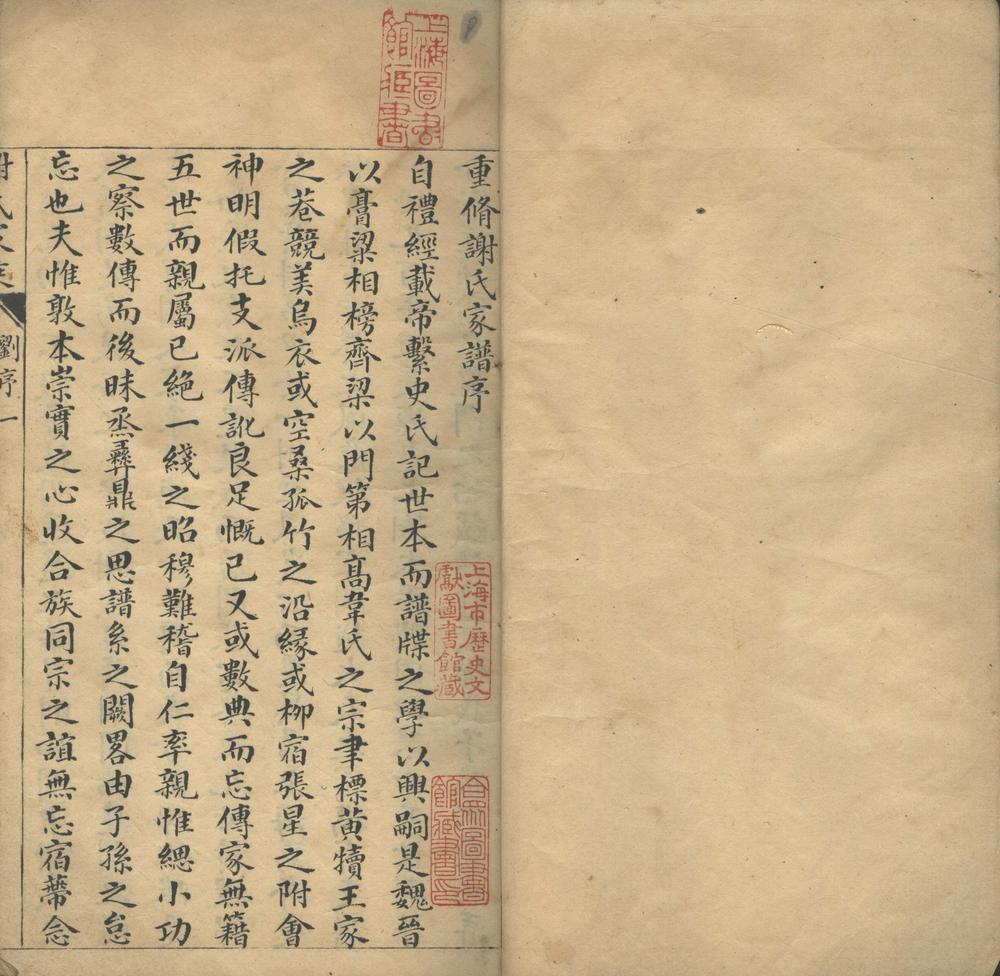 重脩謝氏家譜序
自禮經載帝繫史氏記世本而譜牒之學以興嗣是魏晉
以膏粱相榜齊梁以門第相高韋氏之宗聿標黄犢王家
之巷競美烏衣或空桑孤竹之沿緣或栁宿張星之附會
神明假托支派傳訛良足慨已又或數典而忘傳家無籍
五世而親屬已絶一綫之昭穆難稽自仁率親惟緦小功
之察數傳而後昧烝彝鼎之思譜系之闕畧由子孫之怠
忘也夫惟敦本崇實之心收合族同宗之誼無忘宿莽念
謝氏家乘
劉序一
上海圖書館藏書
上海市歷史文獻圖書館藏
合眾圖書館藏書印